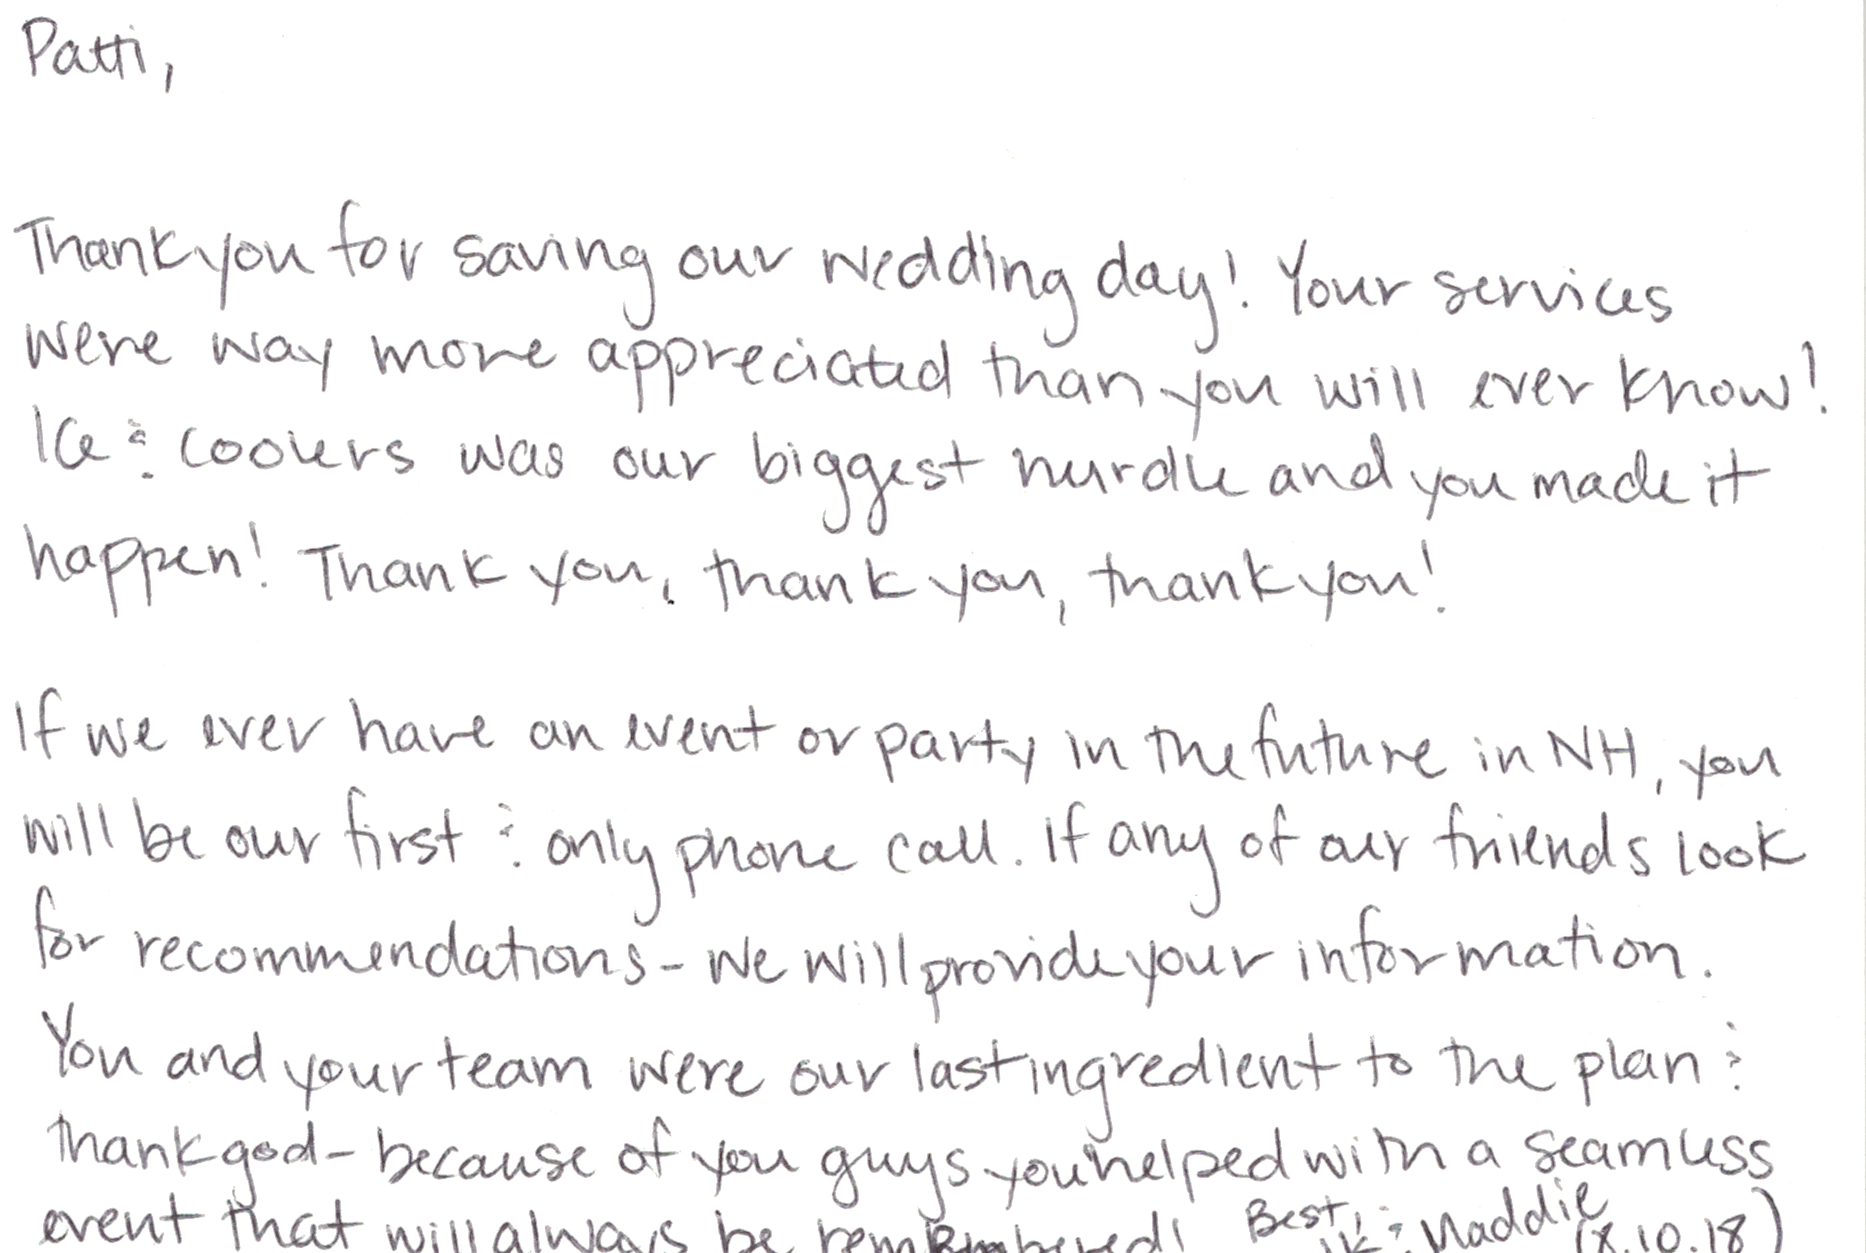 Patti,
Thank you for saving our wedding day! Your services
were way more appreciated than you will ever know!
Ice & coolers was our biggest hurdle and you made it
happen! Thank you, thank you, thank you!
If we ever have an event or party in the future in NH, you
will be our first & only phone call. If any of our friends look
for recommendations - we will provide your information.
You and your team were our last ingredient to the plan &
thank god - because of you guys you helped with a seamless
event that will always be remembered! Best,
& Maddie
(8.10.18)